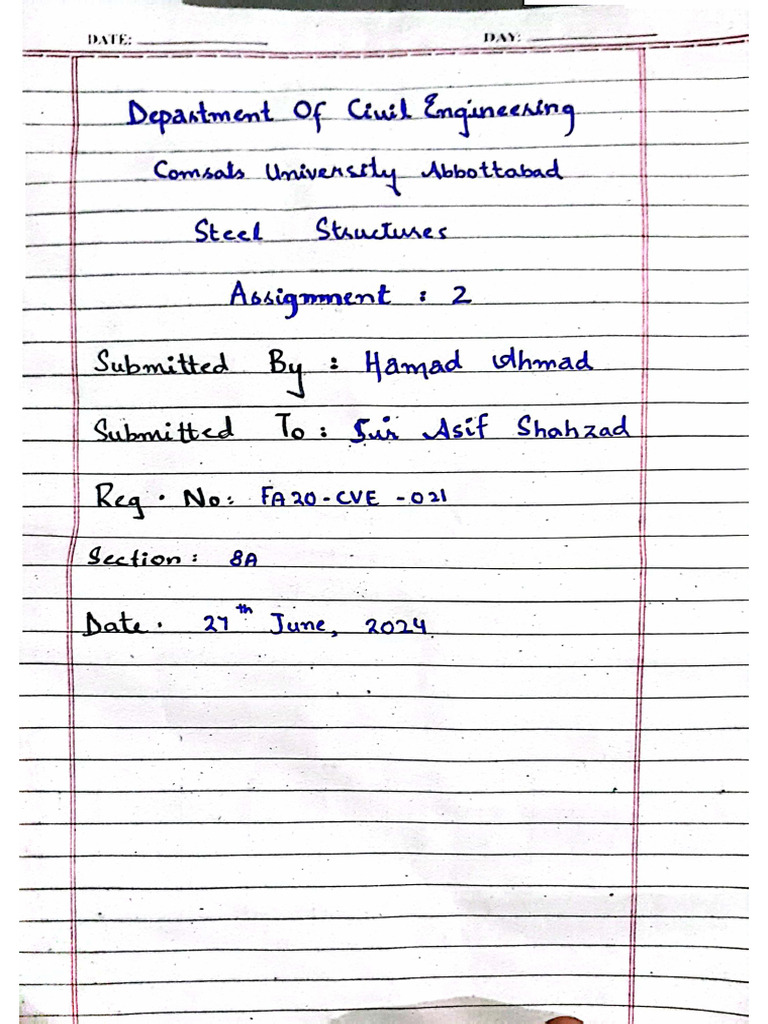 DATE: DAY:
Department Of Civil Engineering
Comsats University Abbottabad
Steel Structures
Assignment : 2
Submitted By : Hamad Ahmad
Submitted To : Sir Asif Shahzad
Reg. No: FA20-CVE-021
Section: 8A
Date. 27th June, 2024